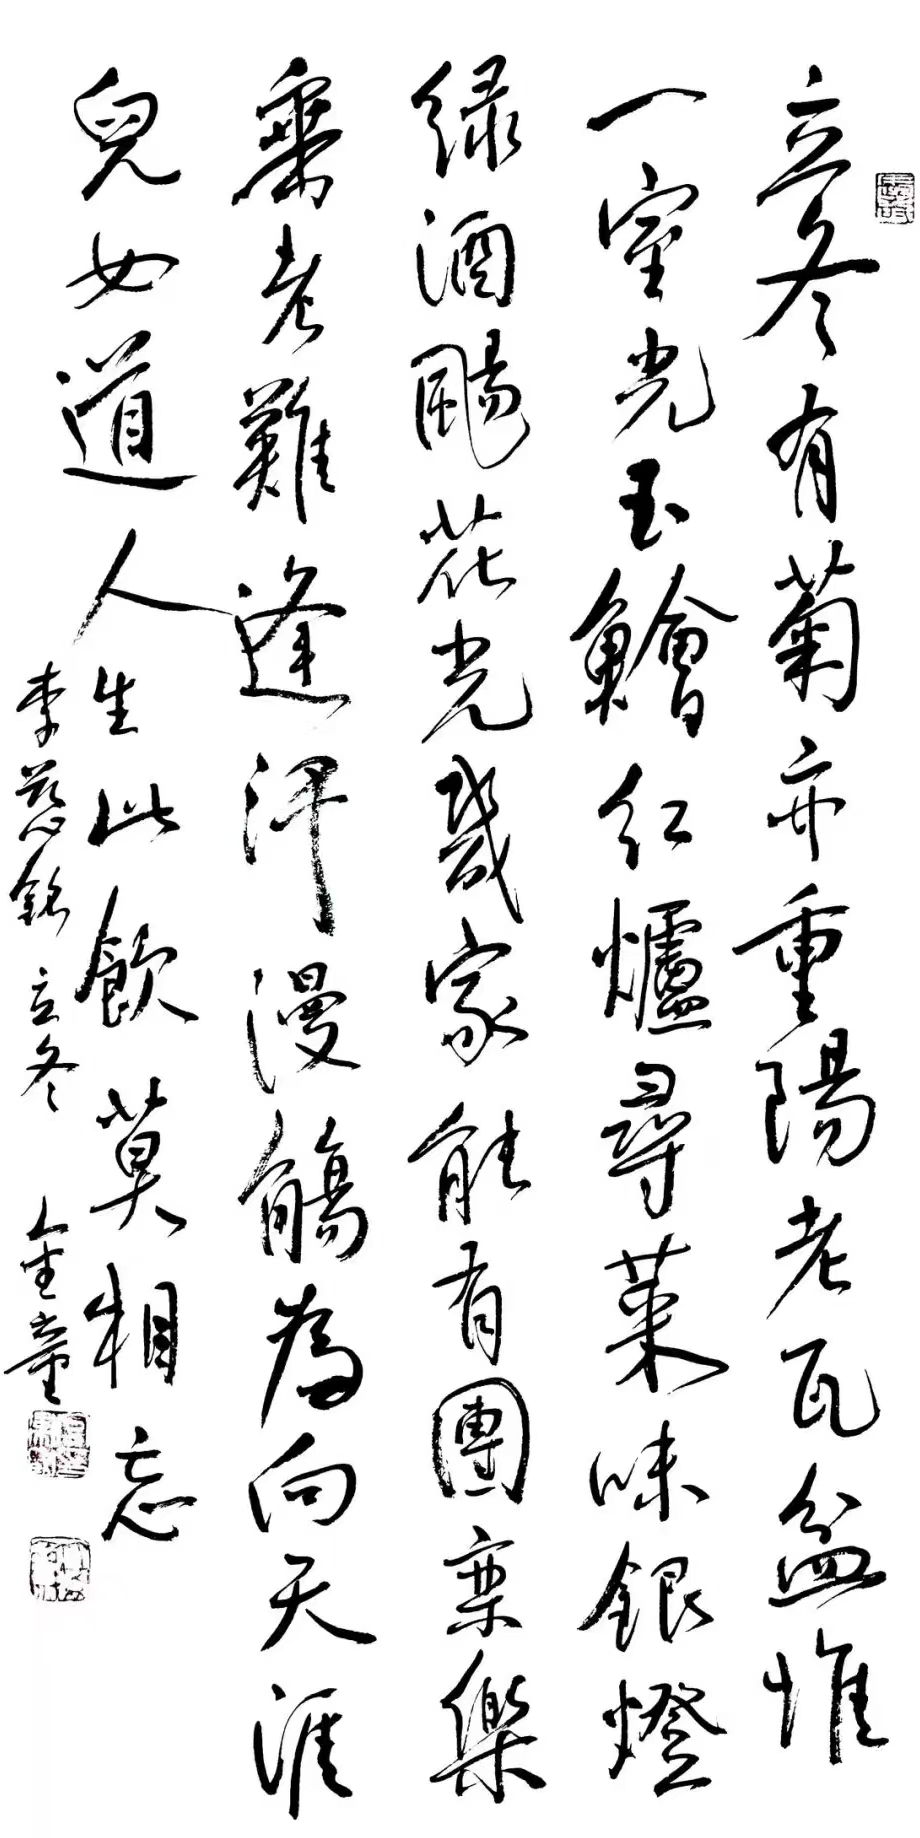 立冬有菊亦重陽老瓦盆惟
一室光玉鱠紅爐尋菜味銀燈
緑酒颺花光幾家能有團栾樂
垂老難逢汗漫觴為向天涯
兒女道人生此飲莫相忘
李慈銘 立冬 金童